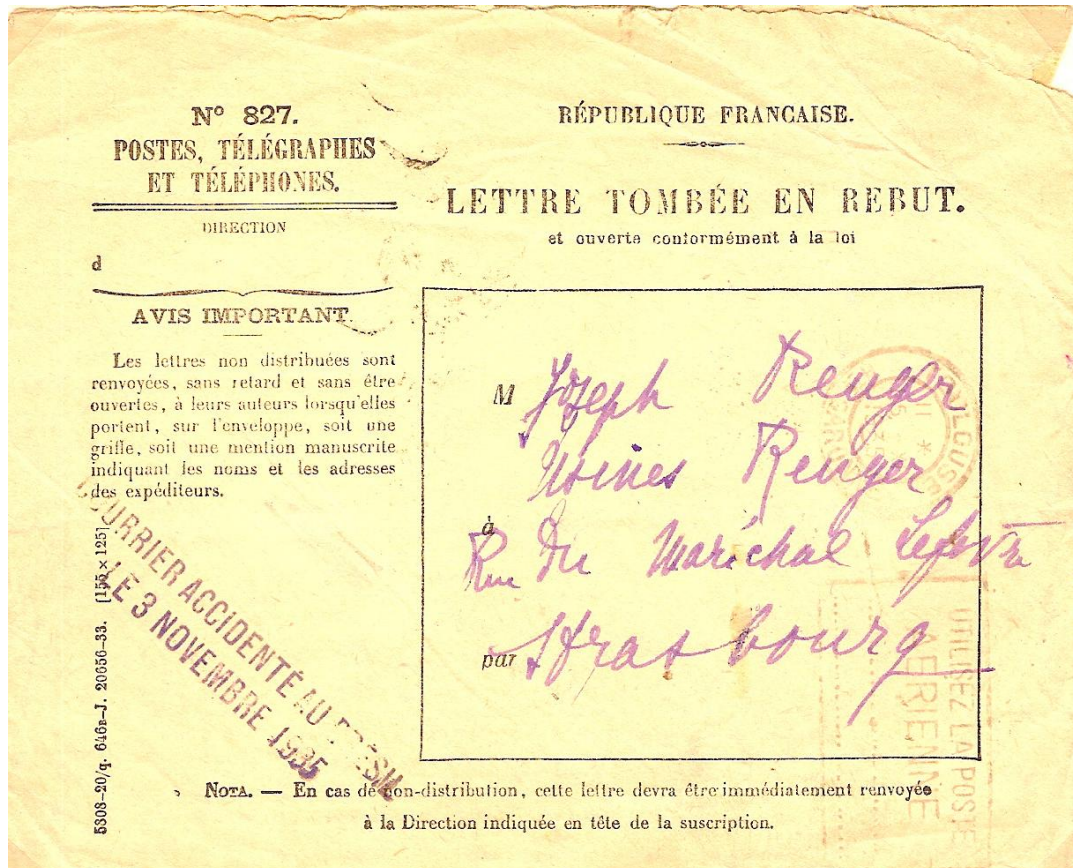 Nº 827.
POSTES, TÉLÉGRAPHES
ET TÉLÉPHONES.
DIRECTION
d
AVIS IMPORTANT.
Les lettres non distribuées sont
renvoyées, sans retard et sans être
ouvertes, à leurs auteurs lorsqu'elles
portent, sur l'enveloppe, soit une
griffe, soit une mention manuscrite
indiquant les noms et les adresses
des expéditeurs.
COURRIER ACCIDENTÉ AU BRÉSIL
LE 3 NOVEMBRE 1935
5308-20/q. 646B-J. 20656-33. [155 × 125]
RÉPUBLIQUE FRANCAISE.
LETTRE TOMBÉE EN REBUT.
et ouverte conformément à la loi
M Joseph Renger
Usines Renger
à
Rue Du Maréchal Lefebvre
par Strasbourg
UTILISEZ LA POSTE
AERIENNE
NOTA. — En cas de non-distribution, cette lettre devra être immédiatement renvoyée
à la Direction indiquée en tête de la suscription.